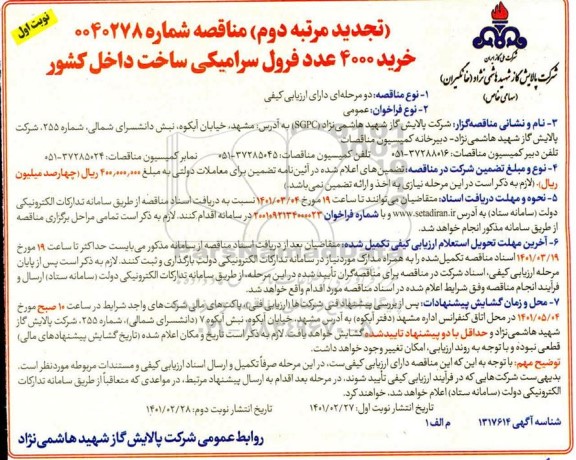 نوبت اول
(تجدید مرتبه دوم) مناقصه شماره ۰۰۴۰۲۷۸
خرید ۴۰۰۰ عدد فرول سرامیکی ساخت داخل کشور
شرکت ملی گاز ایران
شرکت پالایش گاز شهید هاشمی نژاد (خانگیران)
(سهامی خاص)
۱- نوع مناقصه: دو مرحله‌ای دارای ارزیابی کیفی
۲- نوع فراخوان: عمومی
۳- نام و نشانی مناقصه‌گزار: شرکت پالایش گاز شهید هاشمی‌نژاد (SGPC) به آدرس: مشهد، خیابان آبکوه، نبش دانشسرای شمالی، شماره ۲۵۵، شرکت
پالایش گاز شهید هاشمی‌نژاد- دبیرخانه کمیسیون مناقصات
تلفن دبیر کمیسیون مناقصات: ۳۷۲۸۸۰۱۶-۰۵۱ تلفن کمیسیون مناقصات: ۳۷۲۸۵۰۴۵-۰۵۱ نمابر کمیسیون مناقصات: ۳۷۲۸۵۰۲۴-۰۵۱
۴- نوع و مبلغ تضمین شرکت در مناقصه: تضمین‌های اعلام شده در آئین‌نامه تضمین برای معاملات دولتی به مبلغ ۴۰۰,۰۰۰,۰۰۰ ریال (چهارصد میلیون
ریال). (لازم به ذکر است در این مرحله نیازی به اخذ و ارائه تضمین نمی‌باشد.)
۵- نحوه و مهلت دریافت اسناد: متقاضیان می‌توانند تا ساعت ۱۹ مورخ ۱۴۰۱/۰۳/۰۴ نسبت به دریافت اسناد مناقصه از طریق سامانه تدارکات الکترونیکی
دولت (سامانه ستاد) به آدرس www.setadiran.ir و با شماره فراخوان ۲۰۰۱۰۹۲۱۳۴۰۰۰۰۲۳ در سامانه اقدام کنند. لازم به ذکر است تمامی مراحل برگزاری مناقصه
از طریق سامانه مذکور انجام خواهد شد.
۶- آخرین مهلت تحویل استعلام ارزیابی کیفی تکمیل شده: متقاضیان بعد از دریافت اسناد مناقصه از سامانه مذکور می‌بایست حداکثر تا ساعت ۱۹ مورخ
۱۴۰۱/۰۳/۱۹ اسناد مناقصه تکمیل شده را به همراه مدارک مورد نیاز در سامانه تدارکات الکترونیکی دولت بارگذاری و ثبت کنند. لازم به ذکر است پس از پایان
مرحله ارزیابی کیفی، اسناد شرکت در مناقصه برای مناقصه‌گران تأیید شده در این مرحله، از طریق سامانه تدارکات الکترونیکی دولت (سامانه ستاد) ارسال و
فرآیند انجام مناقصه وفق شرایط اعلام شده در اسناد مناقصه مورد اقدام واقع خواهد شد.
۷- محل و زمان گشایش پیشنهادات: پس از بررسی پیشنهاد فنی شرکت‌ها (ارزیابی فنی)، پاکت‌های مالی شرکت‌های واجد شرایط در ساعت ۱۰ صبح مورخ
۱۴۰۱/۰۵/۰۴ در محل اتاق کنفرانس اداره مشهد (دفتر آبکوه) به آدرس: مشهد، خیابان آبکوه، نبش آبکوه ۷ (دانشسرای شمالی)، شماره ۲۵۵، شرکت پالایش گاز
شهید هاشمی‌نژاد و حداقل با دو پیشنهاد تایید شده گشایش خواهد یافت. لازم به ذکر است تاریخ و مکان اعلام شده (تاریخ گشایش پیشنهادهای مالی)
قطعی نبوده و با توجه به روند ارزیابی، امکان تغییر وجود خواهد داشت.
توضیح مهم: با توجه به این که این مناقصه دارای ارزیابی کیفی‌ست، در این مرحله صرفاً تکمیل و ارسال اسناد ارزیابی کیفی و مستندات مربوطه مورد نظر است.
بدیهی‌ست شرکت‌هایی که در فرآیند ارزیابی کیفی تأیید شوند، در مرحله بعد اقدام به ارسال پیشنهاد مرتبط، در مواعدی که متعاقباً از طریق سامانه تدارکات
الکترونیکی دولت (سامانه ستاد) اعلام خواهد شد، خواهند کرد.
تاریخ انتشار نوبت اول: ۱۴۰۱/۰۲/۲۷ تاریخ انتشار نوبت دوم: ۱۴۰۱/۰۲/۲۸
شناسه آگهی ۱۳۱۷۶۱۴ م الف ۱
روابط عمومی شرکت پالایش گاز شهید هاشمی‌نژاد